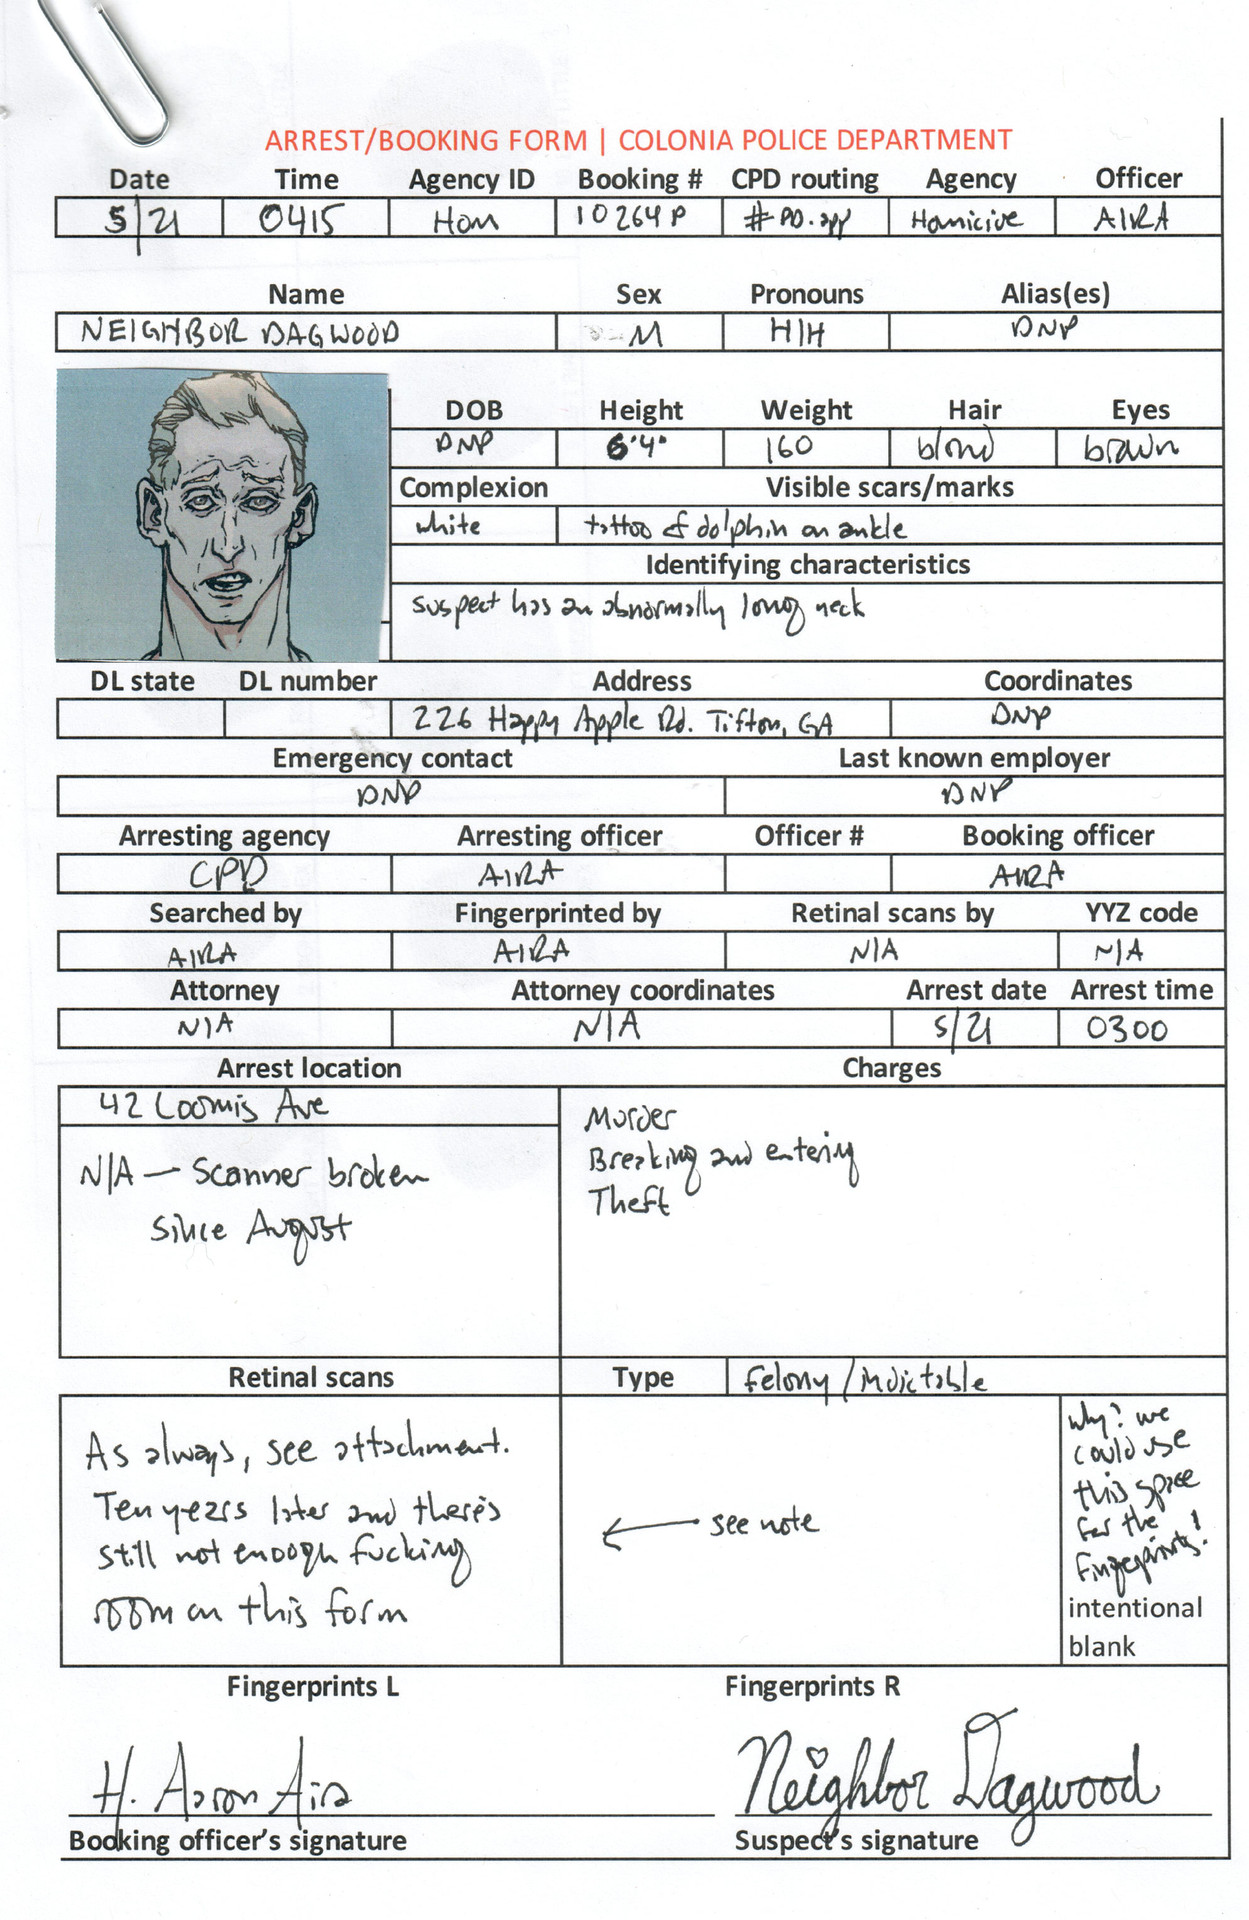 ARREST/BOOKING FORM | COLONIA POLICE DEPARTMENT
Date Time Agency ID Booking # CPD routing Agency Officer
5/21 0415 Hom 10264P #PD.app Homicive AIRA
Name Sex Pronouns Alias(es)
NEIGHBOR DAGWOOD M H/H DNP
DOB Height Weight Hair Eyes
DNP 6'4" 160 blond brown
Complexion Visible scars/marks
white tattoo of dolphin on ankle
Identifying characteristics
suspect has an abnormally long neck
DL state DL number Address Coordinates
226 Happy Apple Rd. Tifton, GA DNP
Emergency contact Last known employer
DNP DNP
Arresting agency Arresting officer Officer # Booking officer
CPD AIRA AIRA
Searched by Fingerprinted by Retinal scans by YYZ code
AIRA AIRA N/A N/A
Attorney Attorney coordinates Arrest date Arrest time
N/A N/A 5/21 0300
Arrest location Charges
42 Loomis Ave
N/A — Scanner broken
since August
Murder
Breaking and entering
Theft
Retinal scans Type Felony/Indictable
As always, see attachment.
Ten years later and there's
still not enough fucking
room on this form
see note
Why? we
could use
this space
for the
fingerprints!
intentional
blank
Fingerprints L Fingerprints R
H. Aaron Aira Neighbor Dagwood
Booking officer's signature Suspect's signature